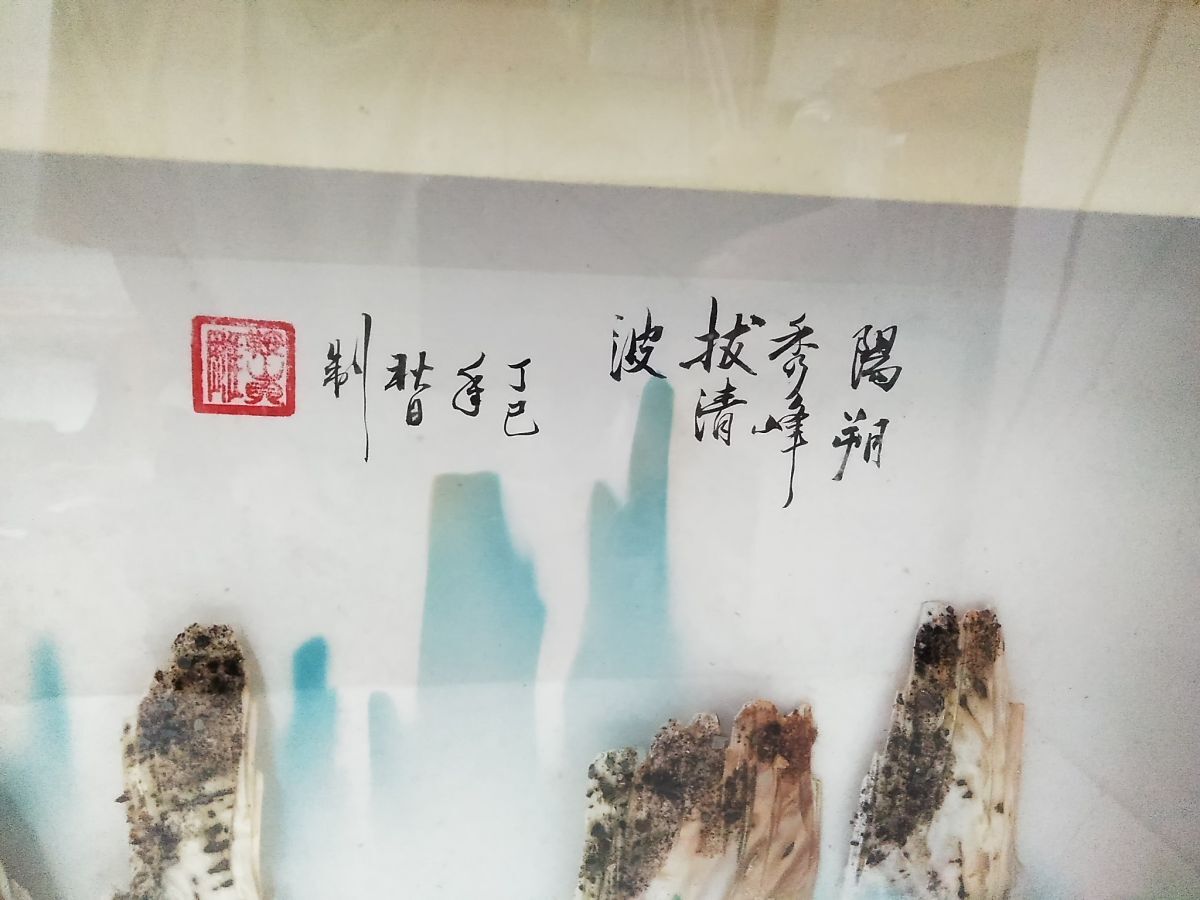 陽朔
秀峰
拔清
波
丁巳
年
秋日
制